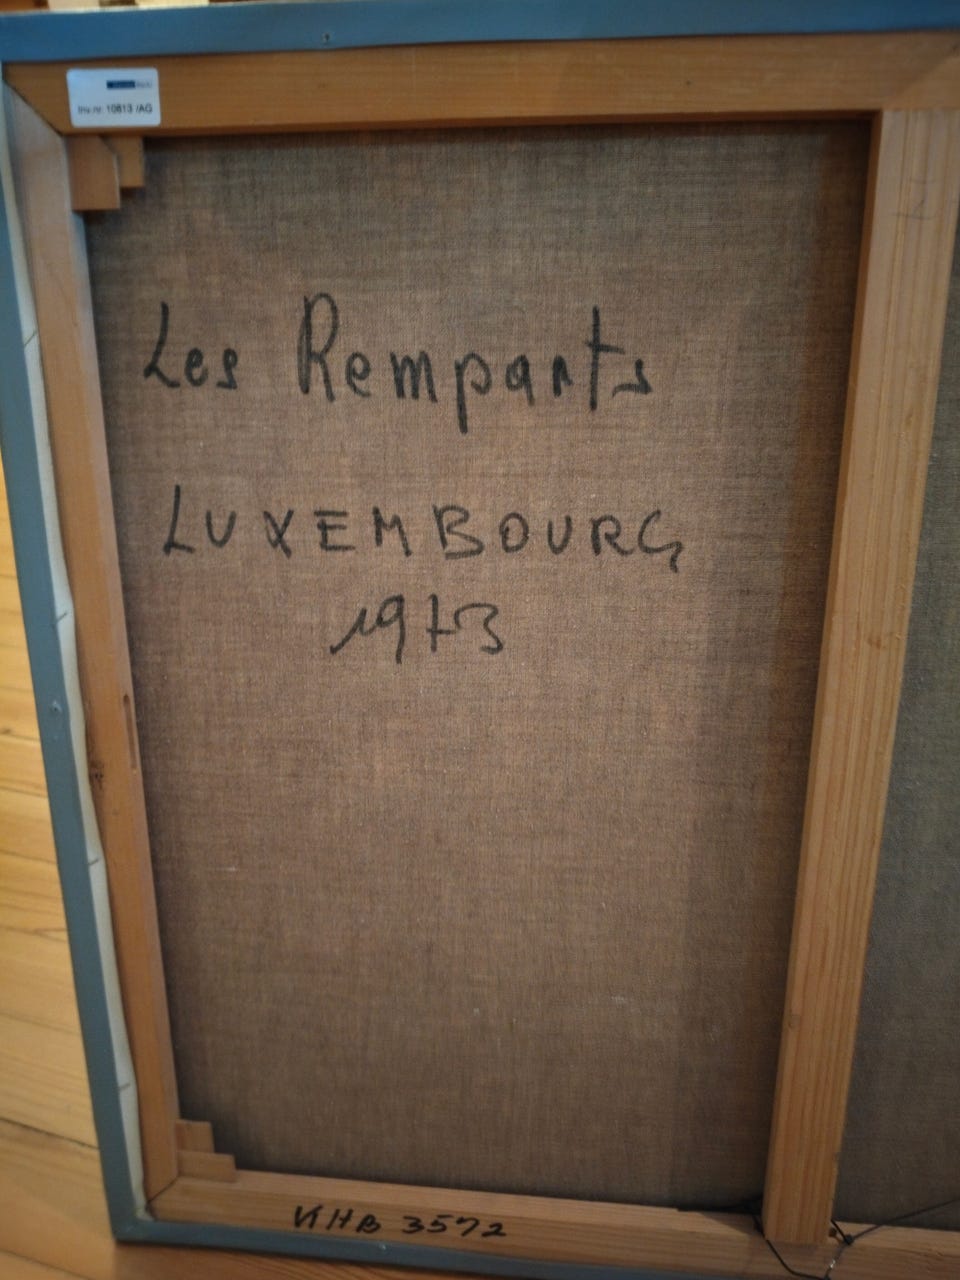 Inv.nr. 10613 /AG
Les Remparts
LUXEMBOURG
1973
KHB 3572